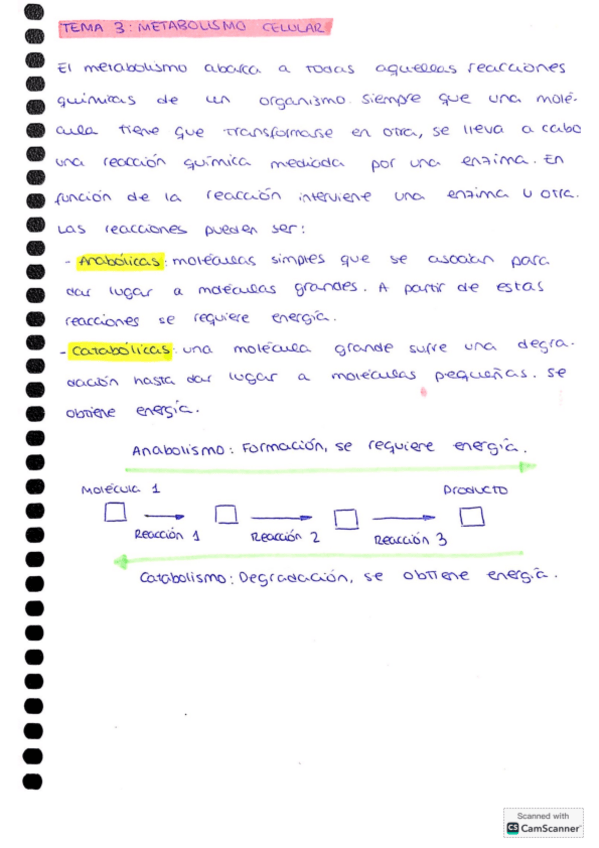 TEMA 3: METABOLISMO CELULAR
El metabolismo abarca a todas aquellas reacciones
químicas de un organismo. Siempre que una molé-
cula tiene que transformarse en otra, se lleva a cabo
una reacción química mediada por una enzima. En
función de la reacción interviene una enzima u otra.
Las reacciones pueden ser:
- Anabólicas: moléculas simples que se asocian para
dar lugar a moléculas grandes. A partir de estas
reacciones se requiere energía.
- Catabólicas: una molécula grande sufre una degra-
dación hasta dar lugar a moléculas pequeñas. Se
obtiene energía.
Anabolismo: Formación, se requiere energía.
Molécula 1 Producto
Reacción 1 Reacción 2 Reacción 3
Catabolismo: Degradación, se obtiene energía.
Scanned with
CS CamScanner